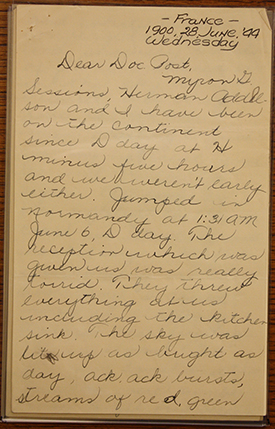 - France -
1900, 28, June, '44
Wednesday
Dear Doc Post,
Myron G.
Sessions, Herman Addle
son and I have been
on the continent
since D day at H
minus five hours
and we weren't early
either. Jumped in
Normandy at 1:31 AM
June 6, D day. The
reception which was
given us was really
torrid. They threw
everything at us
including the kitchen
sink. The sky was
lit up as bright as
day, ack, ack bursts,
streams of red, green